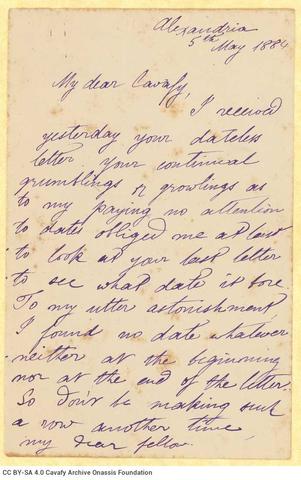 Alexandria
5th May 1884
My dear Cavafy,
I received
yesterday your dateless
letter. Your continual
grumblings & growlings as
to my paying no attention
to dates obliged me at last
to look at your last letter
to see what date it bore.
To my utter astonishment,
I found no date whatever
neither at the beginning
nor at the end of the letter.
So don't be making such
a row another time,
my dear fellow.
CC BY-SA 4.0 Cavafy Archive Onassis Foundation